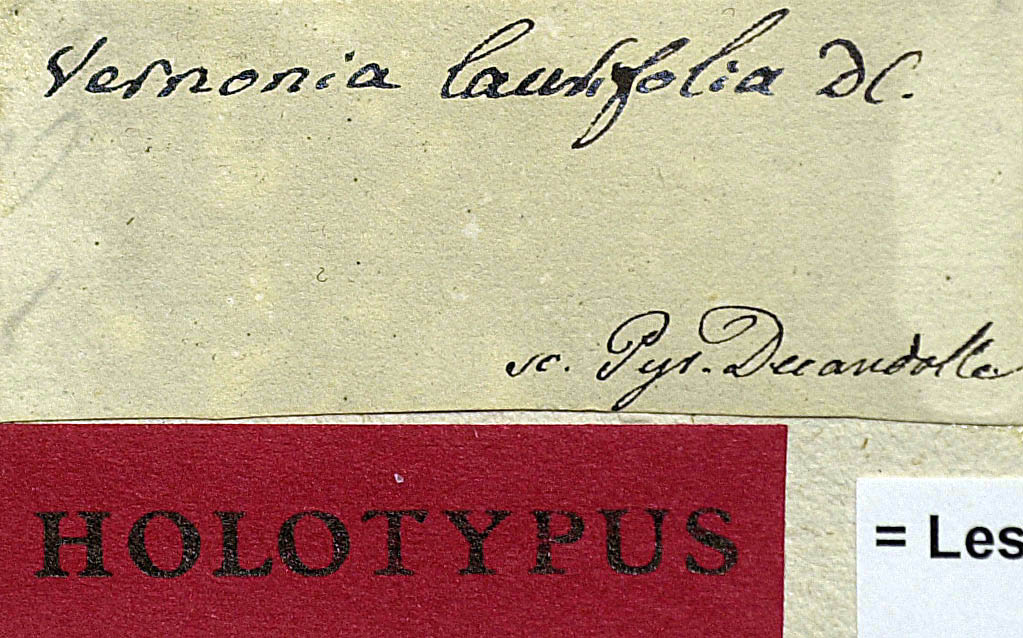 Vernonia laurifolia DC.
sc. Pyr. Decandolle
HOLOTYPUS
= Les